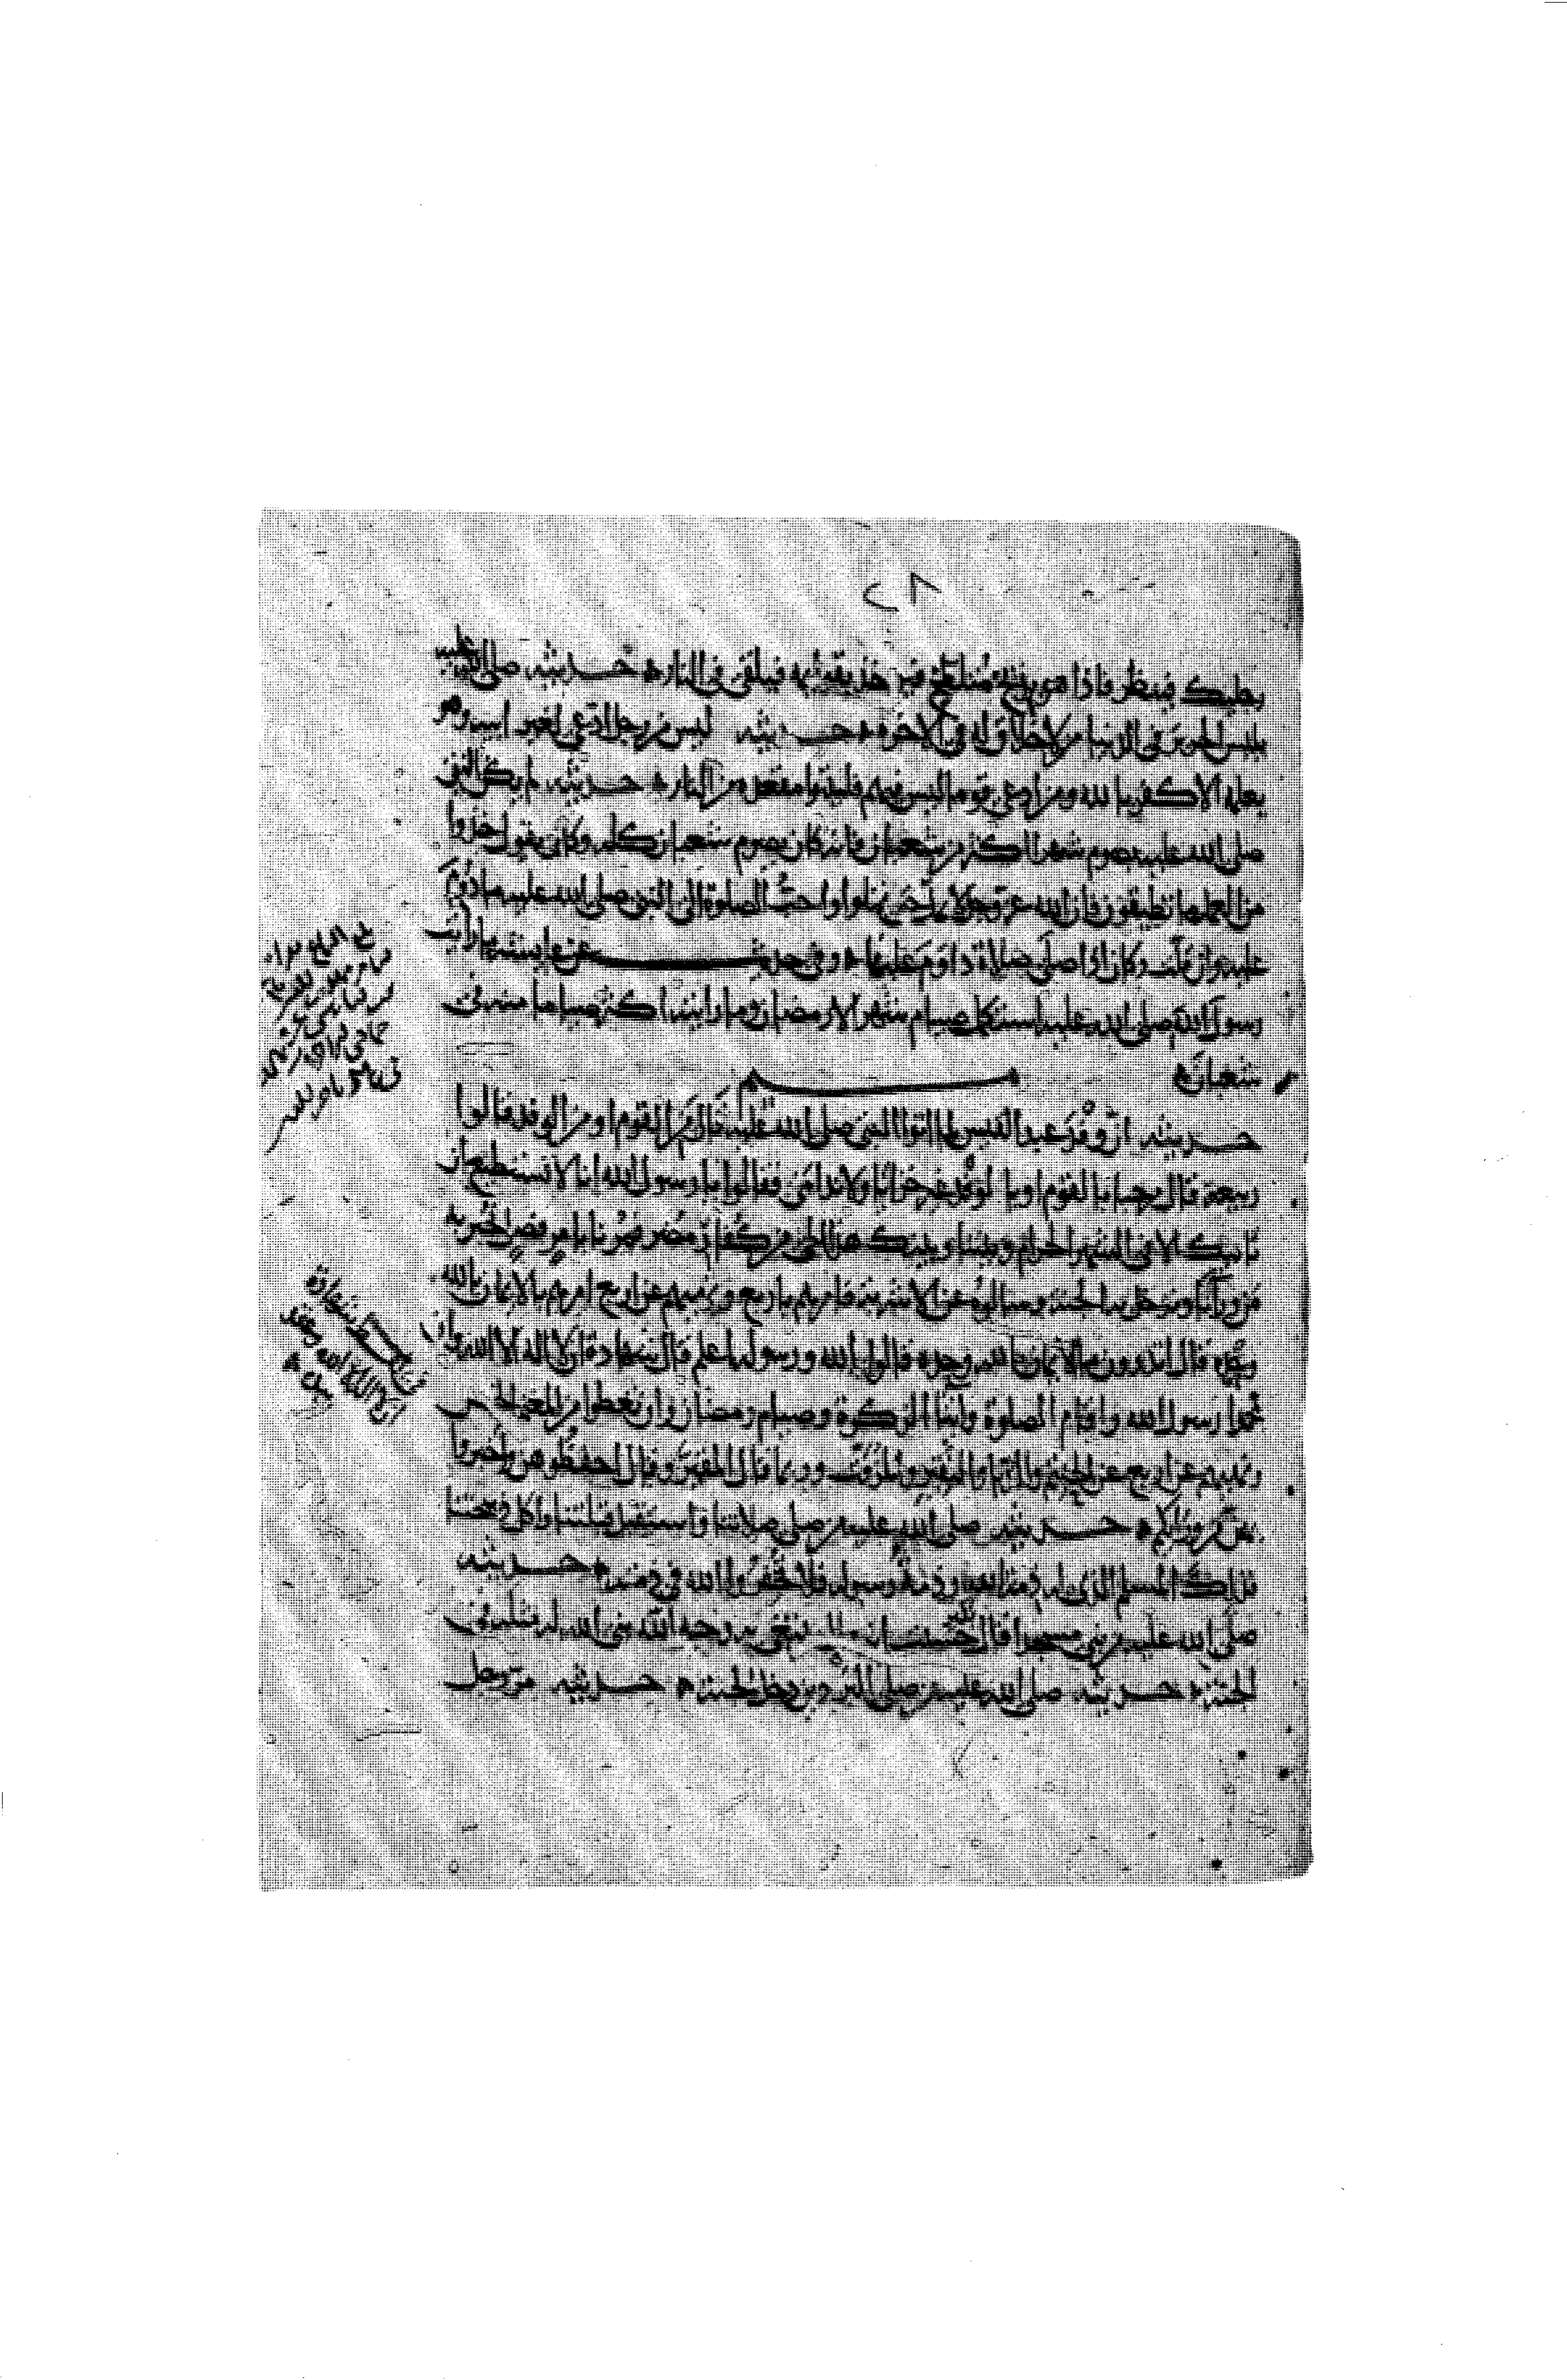 ٢٨
رجليك فينظر فاذا هو بذيخ متلطخ فيؤخذ بقوائمه فيلقى في النار ه حديثه صلى الله عليه
يلبس الحرير في الدنيا من لا خلاق له في الاخرة ه حديثه ليس من رجل ادعى لغير ابيه وهو
يعلمه الا كفر بالله ومن ادعى قوما ليس فيهم فليتبوا مقعده من النار ه حديثه لم يكن النبي
صلى الله عليه يصوم شهرا اكثر من شعبان فانه كان يصوم شعبان كله وكان يقول خذوا
من العمل ما تطيقون فان الله عز وجل لا يمل حتى تملوا واحب الصلوة الى النبي صلى الله عليه ما دووم
عليه وان قلت وكان اذا صلى صلاة داوم عليها ه وفي حديث عن عايشة ما رايت
رسول الله صلى الله عليه استكمل صيام شهر الا رمضان وما رايته اكثر صياما منه في
شعبان ه
حديثه ان وفد عبد القيس لما اتوا النبي صلى الله عليه قال من القوم او من الوفد قالوا
ربيعة قال مرحبا بالقوم او بالوفد غير خزايا ولا ندامى فقالوا يا رسول الله انا لا نستطيع ان
ناتيك الا في الشهر الحرام وبيننا وبينك هذا الحي من كفار مضر فمرنا بامر فصل نخبر به
من وراانا وندخل به الجنة وسالوه عن الاشربة فامرهم باربع ونهيهم عن اربع امرهم بالايمان بالله
وحده قال اتدرون ما الايمان بالله وحده قالوا الله ورسوله اعلم قال شهادة ان لا اله الا الله وان
محمدا رسول الله واقام الصلوة وايتا الزكوة وصيام رمضان وان تعطوا من المغنم الخمس
ونهيهم عن اربع عن الحنتم والدبا والنقير والمزفت وربما قال المقير وقال احفظوهن واخبروا
بهن من ورايكم ه حديثه صلى الله عليه من صلى صلاتنا واستقبل قبلتنا واكل ذبيحتنا
فذلك المسلم الذي له ذمة الله وذمة رسوله فلا تخفروا الله في ذمته ه حديثه
صلى الله عليه من بنى مسجدا قال حسبت انه قال يبتغي به وجه الله بنى الله له مثله في
الجنة ه حديثه صلى الله عليه من صلى البردين دخل الجنة ه حديثه من رجل